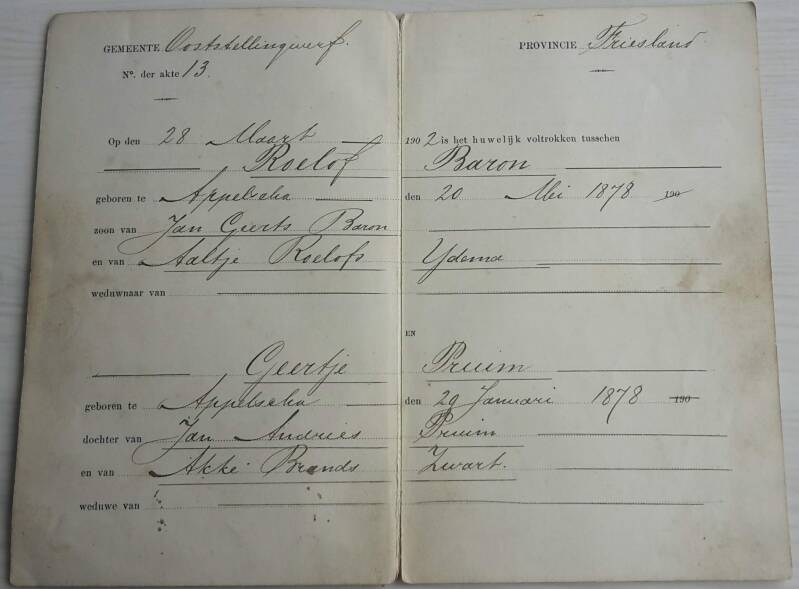 GEMEENTE Ooststellingwerf. PROVINCIE Friesland
No. der akte 13.
Op den 28 Maart 1902 is het huwelijk voltrokken tusschen
Roelof Baron
geboren te Appelscha den 20 Mei 1878 190
zoon van Jan Geerts Baron
en van Aaltje Roelofs Ydema
weduwnaar van
EN
Geertje Pruim
geboren te Appelscha den 29 Januari 1878 190
dochter van Jan Andries Pruim
en van Akke Brands Zwart.
weduwe van